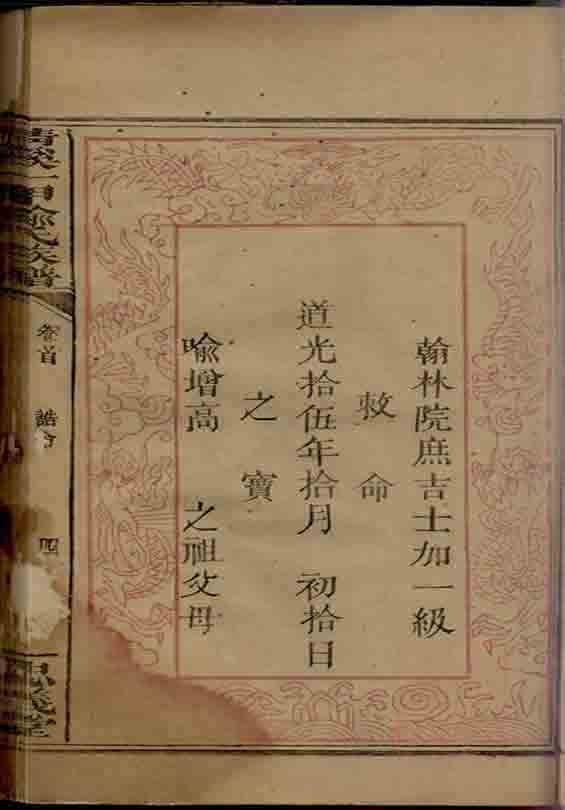 翰林院庶吉士加一級
敕命
道光拾伍年拾月 初拾日
之寶
喻增高 之祖父母
氏族譜
卷首 誥命 四